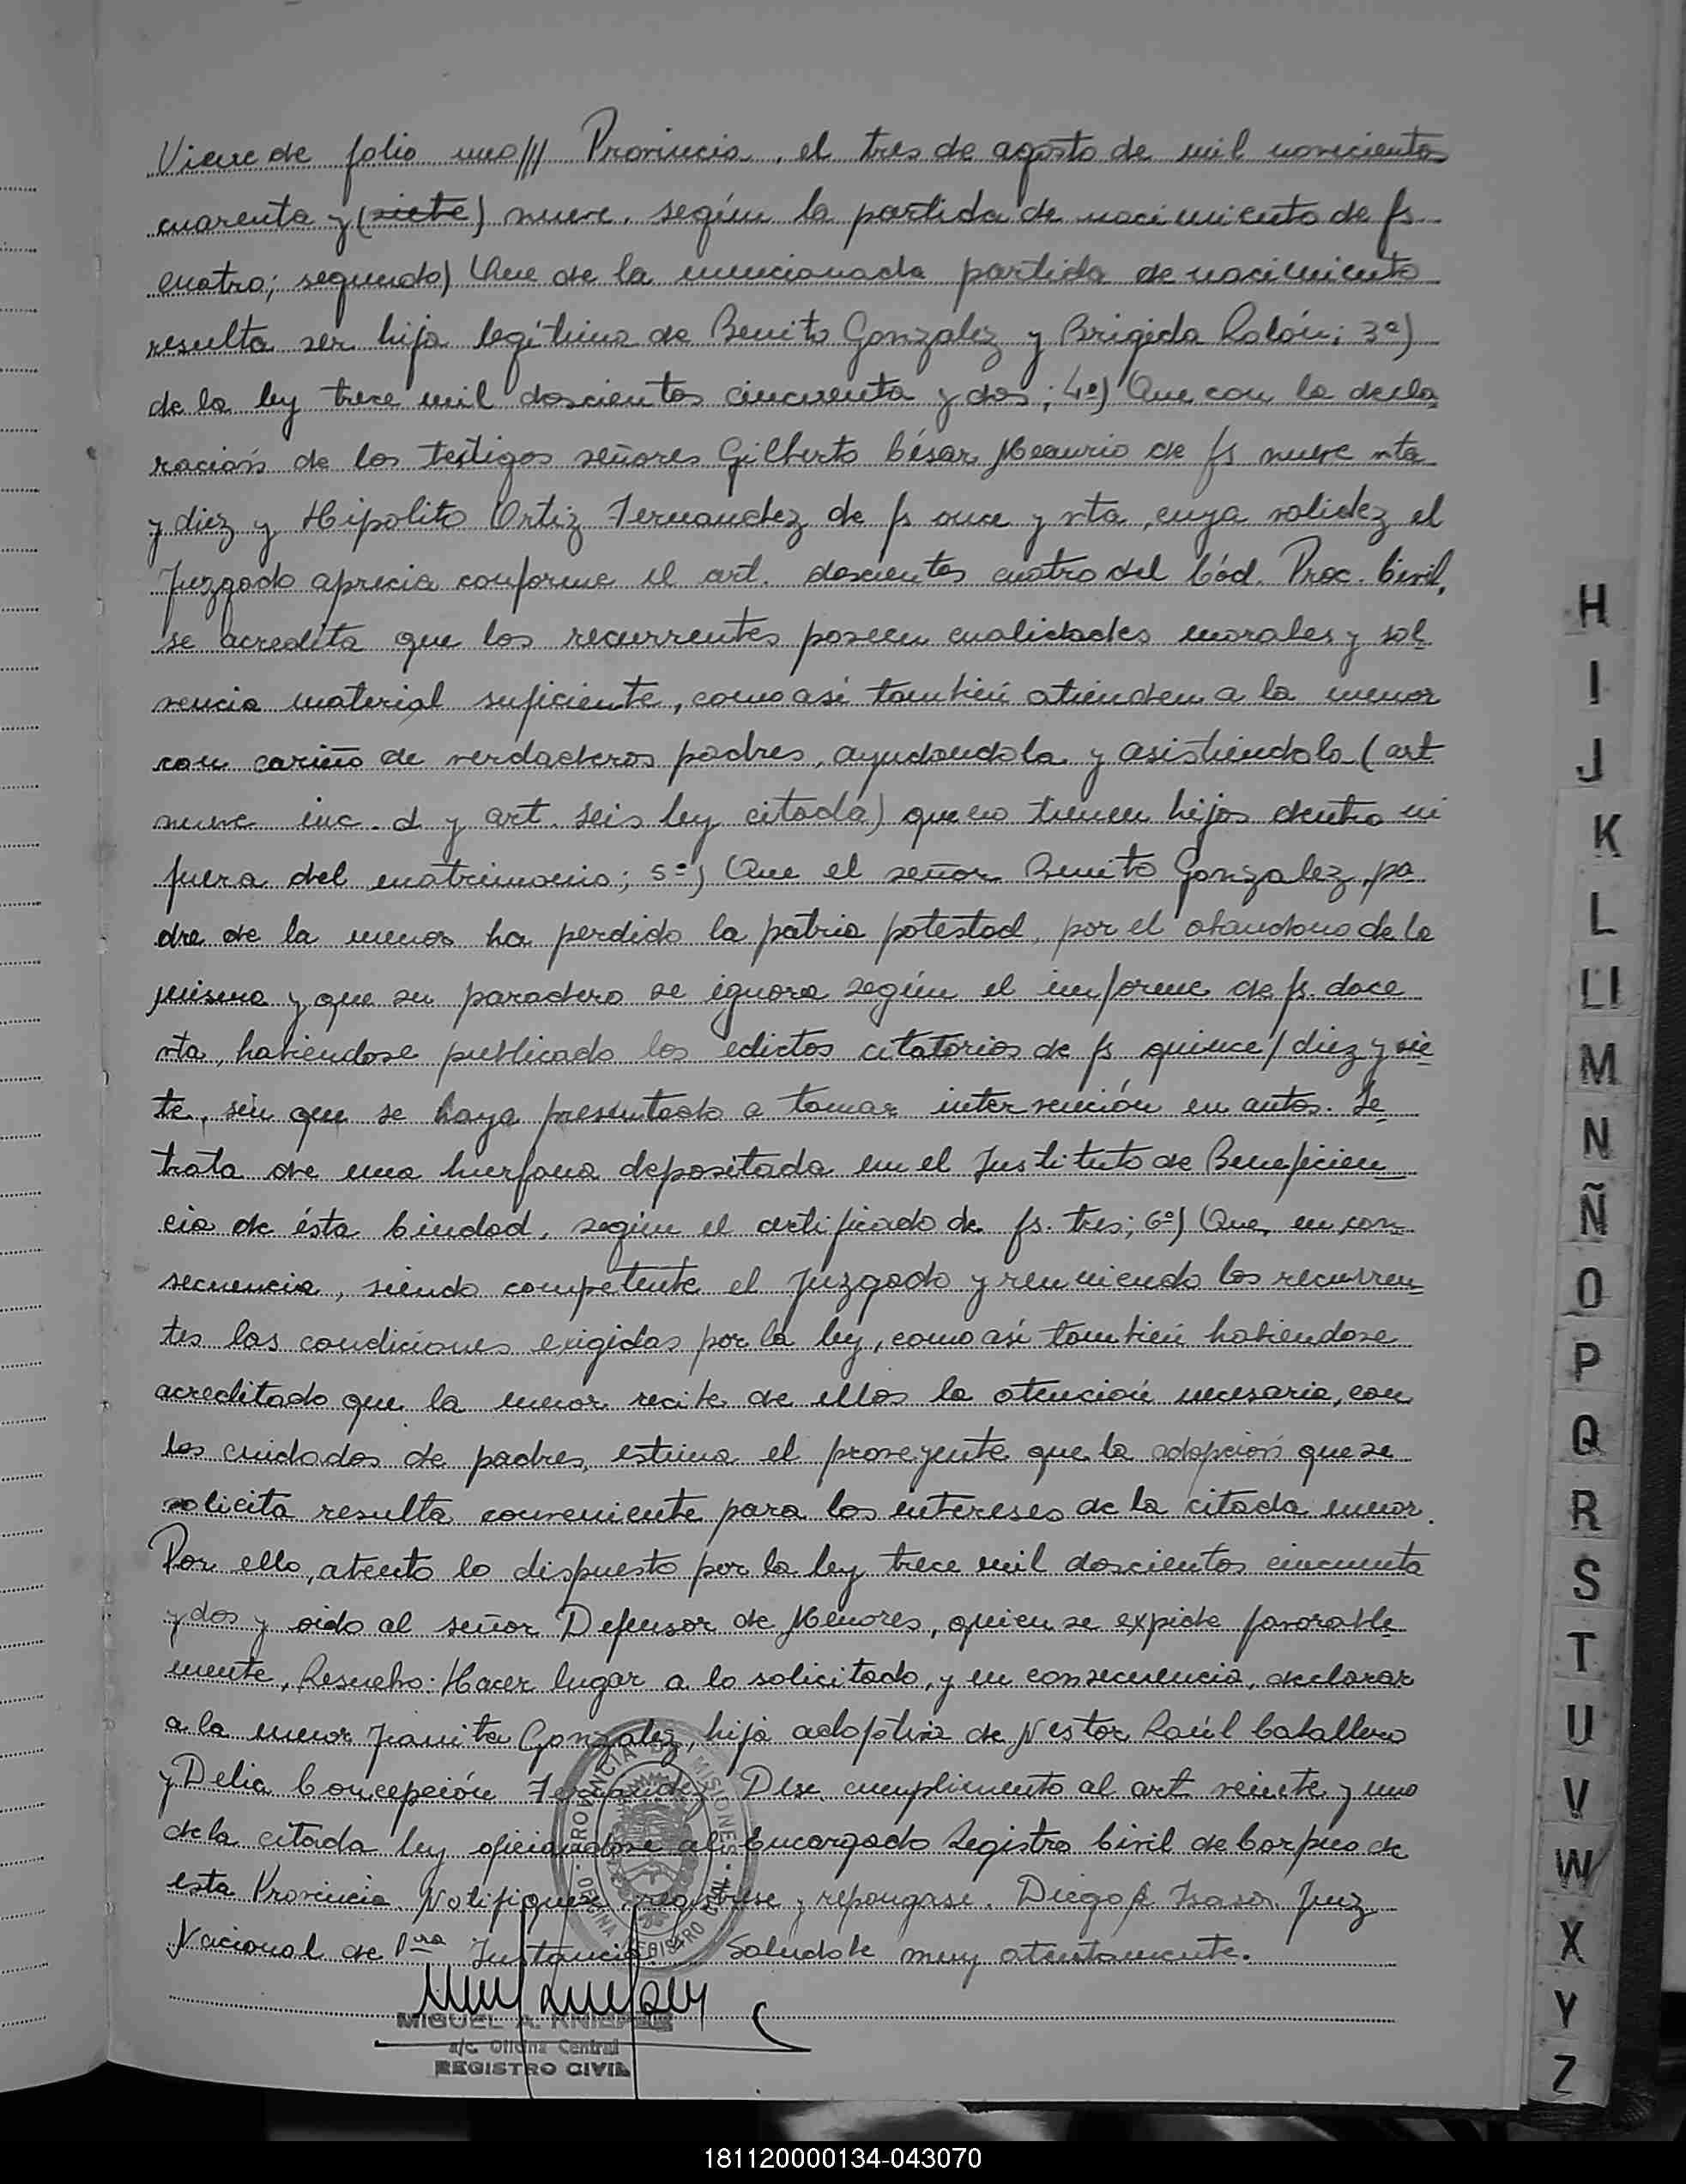 Viene de folio uno/// Provincia, el tres de agosto de mil novecientos
cuarenta y (siete) nueve, según la partida de nacimiento de fs
cuatro; segundo) Que de la mencionada partida de nacimiento
resulta ser hija legítima de Benito Gonzalez y Brigida Rolón; 3º)
de la ley trece mil doscientos cincuenta y dos; 4º) Que con la decla
ración de los testigos señores Gilberto César Meaurio de fs nueve vta
y diez y Hipolito Ortiz Fernandez de fs once y vta, cuya validez el
Juzgado aprecia conforme el art. doscientos cuatro del Cód. Proc. Civil,
se acredita que los recurrentes poseen cualidades morales y sol
vencia material suficiente, como asi también atienden a la menor
con cariño de verdaderos padres, ayudandola y asistiendola (art
nueve inc. d y art. seis ley citada) que no tienen hijos dentro ni
fuera del matrimonio; 5º) Que el señor Benito Gonzalez, pa
dre de la menor ha perdido la patria potestad, por el abandono de la
misma y que su paradero se ignora según el informe de fs. doce
vta, habiendose publicado los edictos citatorios de fs quince/diez y sie
te, sin que se haya presentado a tomar intervención en autos. Se
trata de una huerfana depositada en el Instituto de Beneficien
cia de ésta Ciudad, según el certificado de fs. tres; 6º) Que, en con
secuencia, siendo competente el Juzgado y reuniendo los recurren
tes las condiciones exigidas por la ley, como asi también habiendose
acreditado que la menor recibe de ellos la atención necesaria, con
los cuidados de padres, estima el proveyente que la adopción que se
solicita resulta conveniente para los intereses de la citada menor.
Por ello, atento lo dispuesto por la ley trece mil doscientos cincuenta
y dos y oido al señor Defensor de Menores, quien se expide favorable
mente, Resuelvo: Hacer lugar a lo solicitado, y en consecuencia, declarar
a la menor Juanita Gonzalez, hija adoptiva de Nestor Raúl Caballero
y Delia Concepción Fernandez. Dese cumplimiento al art. veinte y uno
de la citada ley oficiandose al Encargado Registro Civil de Corpus de
esta Provincia. Notifiquese, registrese y repongase. Diego Isasa Juez
Nacional de 1ra Instancia. Saludole muy atentamente.
PROVINCIA DE MISIONES
OFICINA REGISTRO CIVIL
MIGUEL A. KNIEPER
a/c. Oficina Central
REGISTRO CIVIL
H
I
J
K
L
Ll
M
N
Ñ
O
P
Q
R
S
T
U
V
W
X
Y
Z
181120000134-043070